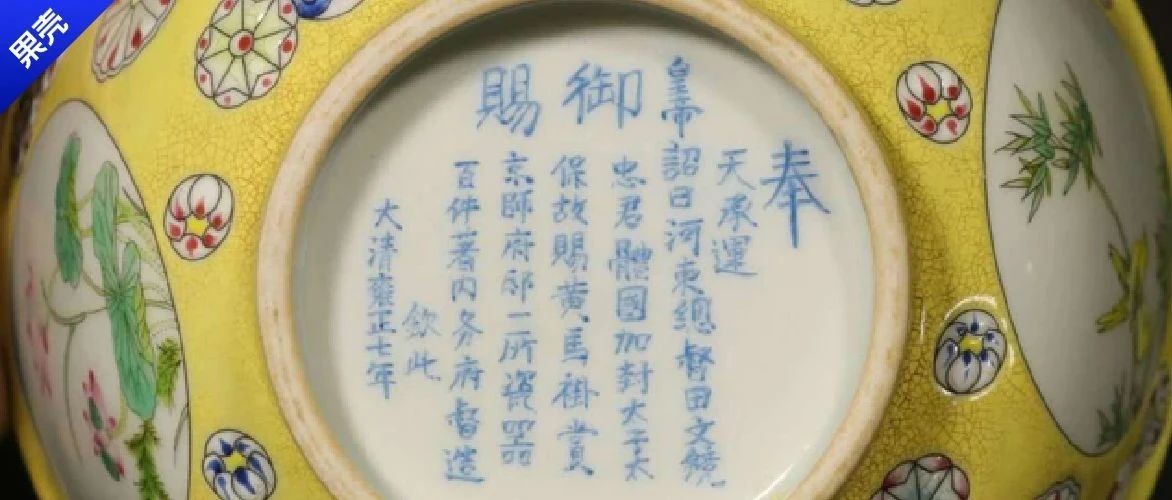 果壳
御賜
奉
天承運
皇帝詔曰河東總督田文鏡
忠君體國加封大子太
保故賜黃馬褂賞
京師府邸二所瓷器
百件著内务府督造
欽此
大清雍正七年